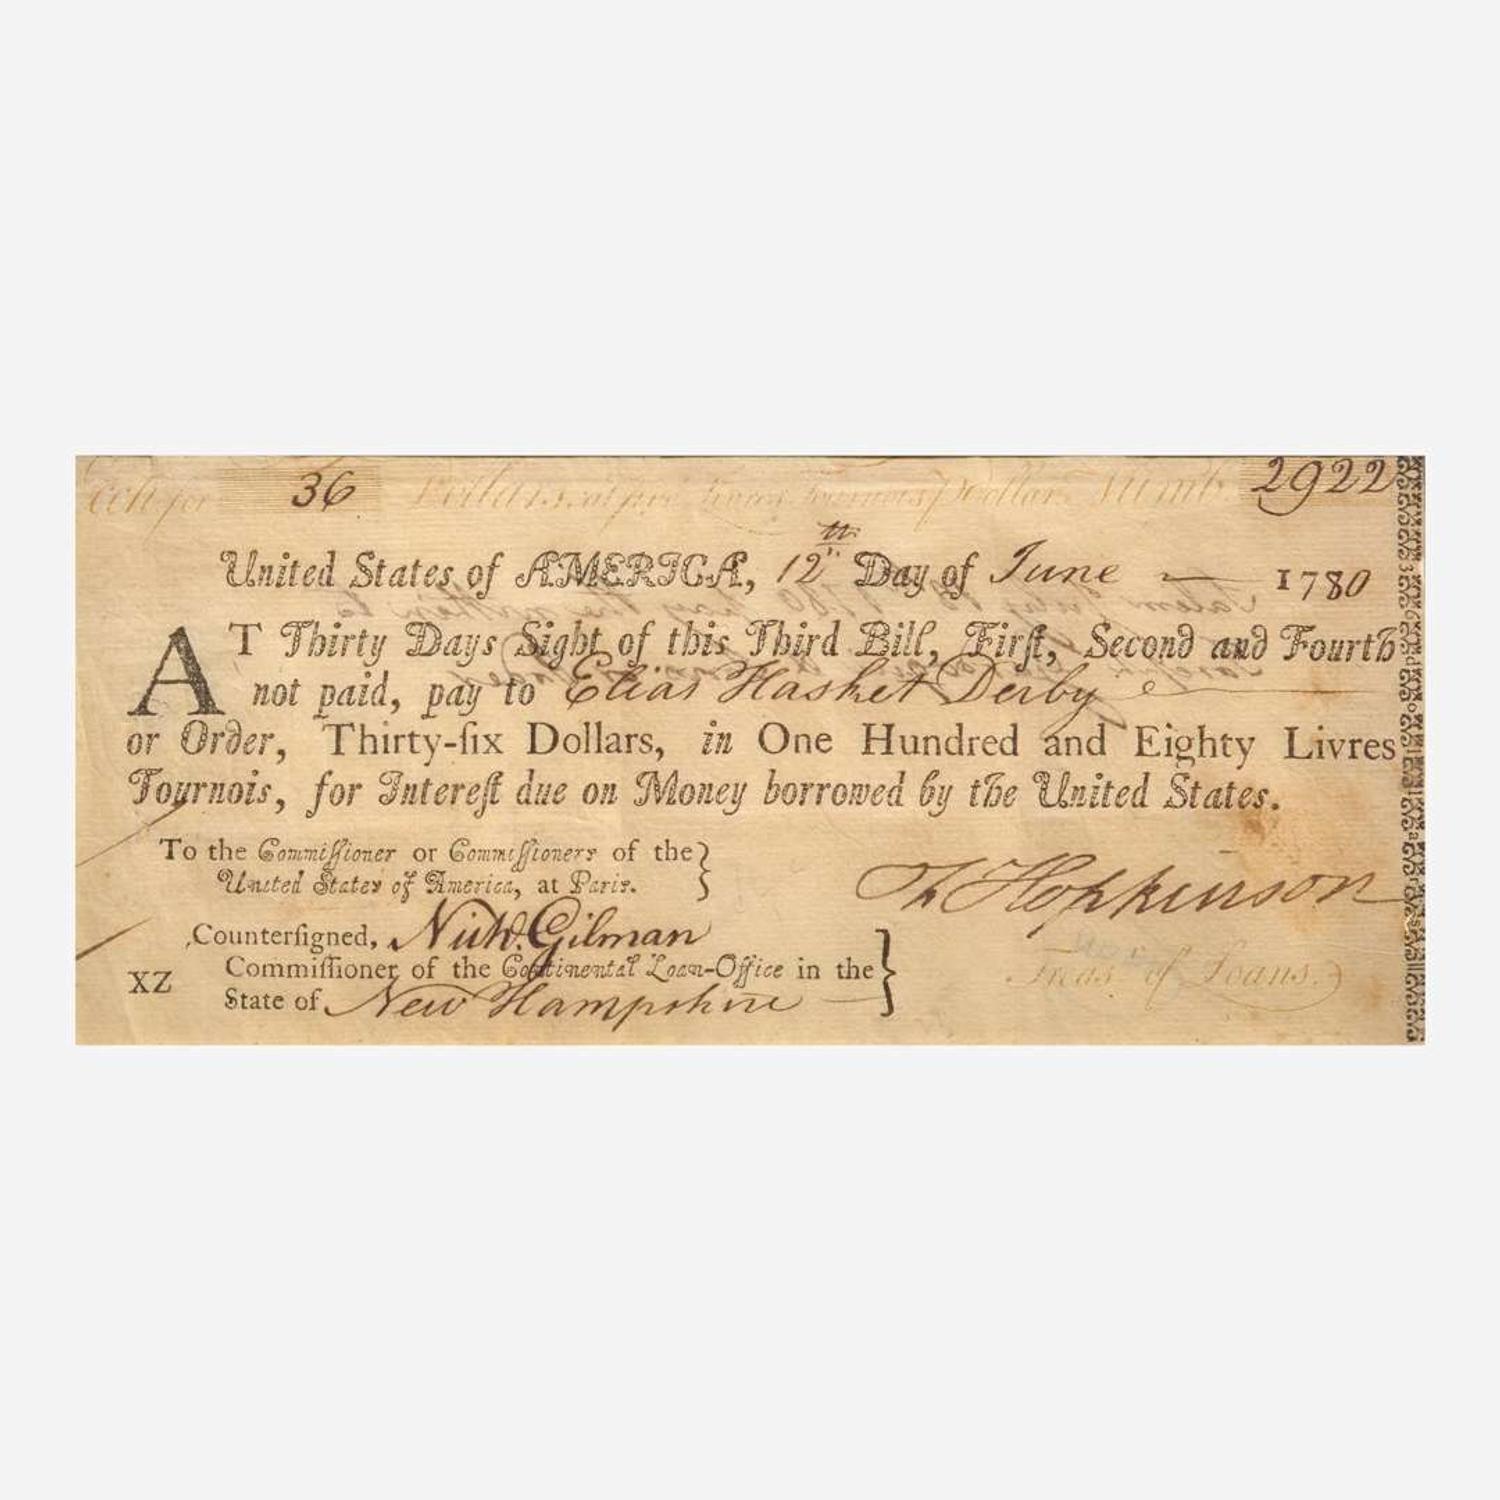 36 Dollars, at Livres Tournois Dollar Numb. 2922
United States of AMERICA, 12th Day of June 1780
AT Thirty Days Sight of this Third Bill, Firſt, Second and Fourth
not paid, pay to Elias Hasket Derby
or Order, Thirty-ſix Dollars, in One Hundred and Eighty Livres
Tournois, for Intereſt due on Money borrowed by the United States.
To the Commiſſioner or Commiſſioners of the
United States of America, at Paris.
Hopkinson
Treas. of Loans.
Counterſigned, Gilman
XZ Commiſſioner of the Continental Loan-Office in the
State of New Hampshire